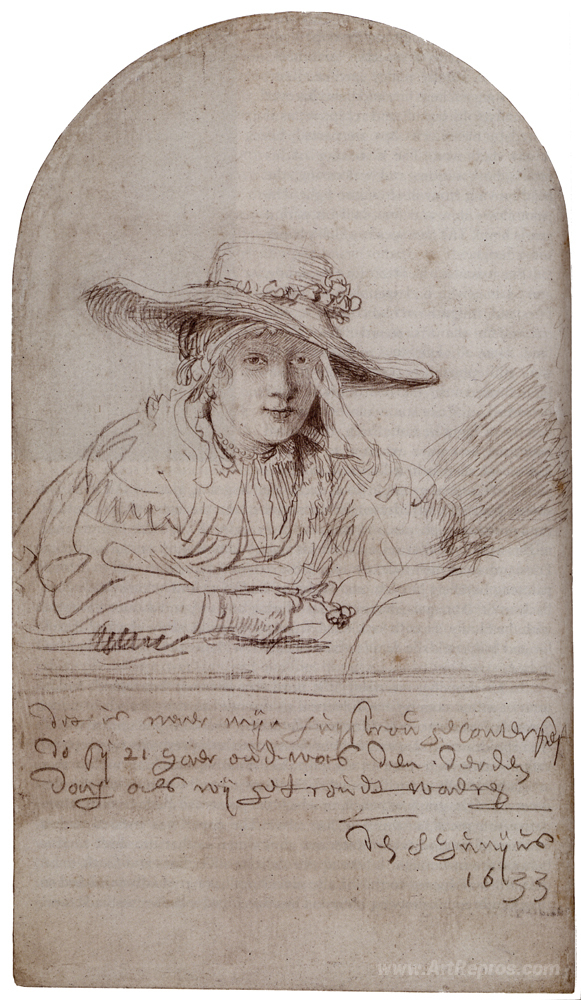 dit is naer mijn huijsvrou geconterfeit
do sij 21 jaer oud was den derden
dach als wij getroudt waeren
den 8 junijus
1633
www.ArtRepros.com